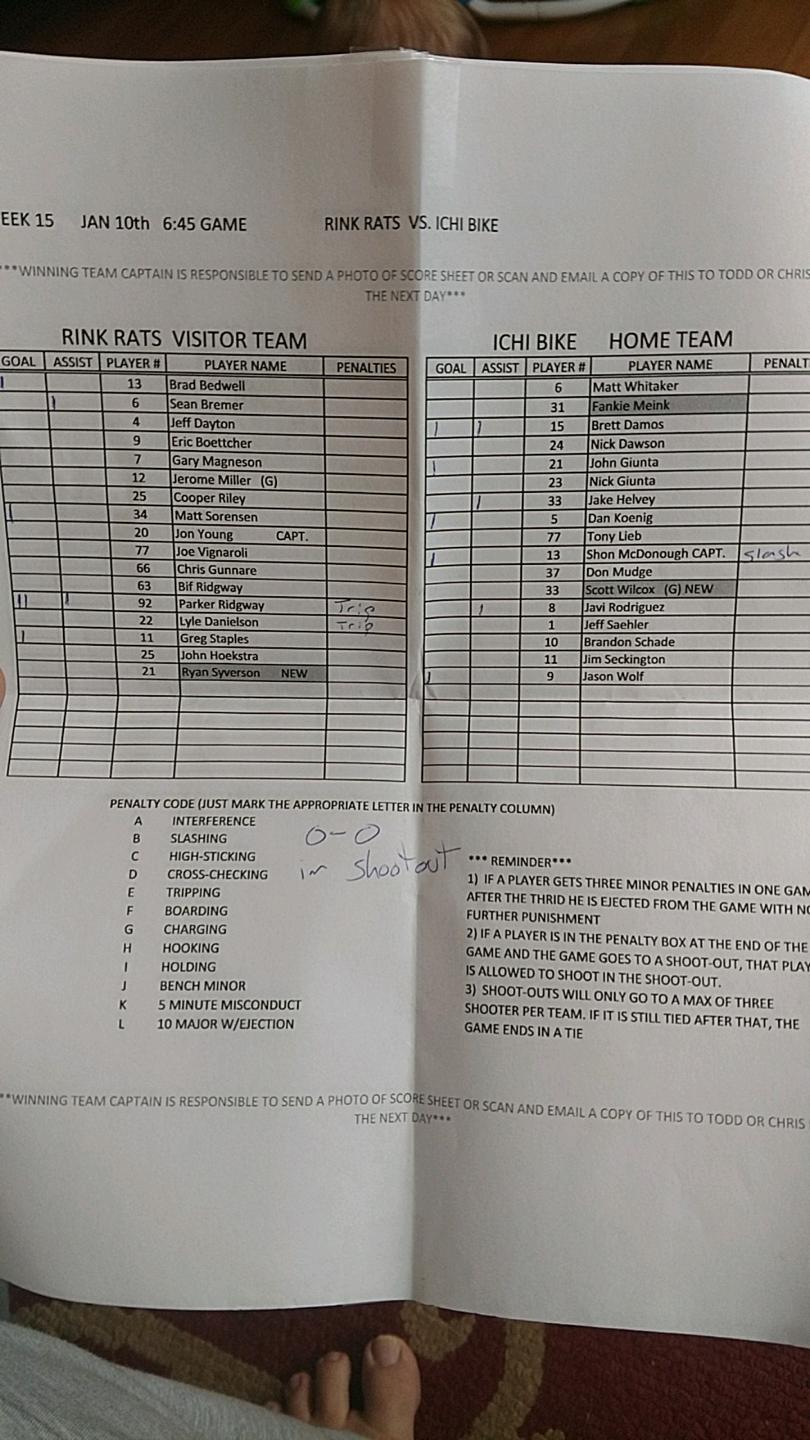 EEK 15 JAN 10th 6:45 GAME RINK RATS VS. ICHI BIKE
***WINNING TEAM CAPTAIN IS RESPONSIBLE TO SEND A PHOTO OF SCORE SHEET OR SCAN AND EMAIL A COPY OF THIS TO TODD OR CHRIS
THE NEXT DAY***
RINK RATS VISITOR TEAM
GOAL ASSIST PLAYER # PLAYER NAME PENALTIES
I 13 Brad Bedwell
I 6 Sean Bremer
4 Jeff Dayton
9 Eric Boettcher
7 Gary Magneson
12 Jerome Miller (G)
25 Cooper Riley
I 34 Matt Sorensen
20 Jon Young CAPT.
77 Joe Vignaroli
66 Chris Gunnare
63 Bif Ridgway
II I 92 Parker Ridgway Trip
22 Lyle Danielson Trip
I 11 Greg Staples
25 John Hoekstra
21 Ryan Syverson NEW
ICHI BIKE HOME TEAM
GOAL ASSIST PLAYER # PLAYER NAME PENALT
6 Matt Whitaker
31 Fankie Meink
I I 15 Brett Damos
24 Nick Dawson
I 21 John Giunta
23 Nick Giunta
I 33 Jake Helvey
I 5 Dan Koenig
77 Tony Lieb
I 13 Shon McDonough CAPT. slash
37 Don Mudge
33 Scott Wilcox (G) NEW
I 8 Javi Rodriguez
1 Jeff Saehler
10 Brandon Schade
11 Jim Seckington
I 9 Jason Wolf
PENALTY CODE (JUST MARK THE APPROPRIATE LETTER IN THE PENALTY COLUMN)
A INTERFERENCE
B SLASHING
C HIGH-STICKING
D CROSS-CHECKING
E TRIPPING
F BOARDING
G CHARGING
H HOOKING
I HOLDING
J BENCH MINOR
K 5 MINUTE MISCONDUCT
L 10 MAJOR W/EJECTION
0-0
in shootout
*** REMINDER***
1) IF A PLAYER GETS THREE MINOR PENALTIES IN ONE GAM
AFTER THE THRID HE IS EJECTED FROM THE GAME WITH NO
FURTHER PUNISHMENT
2) IF A PLAYER IS IN THE PENALTY BOX AT THE END OF THE
GAME AND THE GAME GOES TO A SHOOT-OUT, THAT PLAY
IS ALLOWED TO SHOOT IN THE SHOOT-OUT.
3) SHOOT-OUTS WILL ONLY GO TO A MAX OF THREE
SHOOTER PER TEAM. IF IT IS STILL TIED AFTER THAT, THE
GAME ENDS IN A TIE
**WINNING TEAM CAPTAIN IS RESPONSIBLE TO SEND A PHOTO OF SCORE SHEET OR SCAN AND EMAIL A COPY OF THIS TO TODD OR CHRIS
THE NEXT DAY***